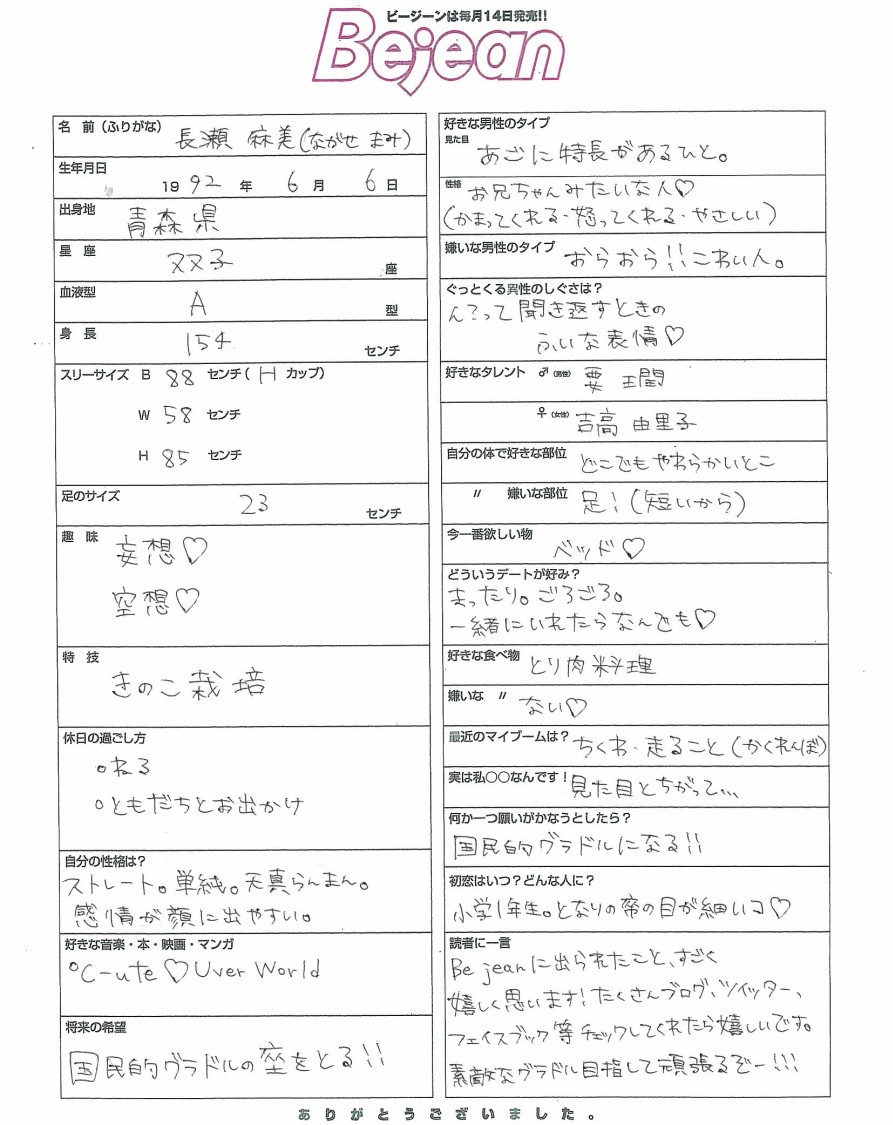 ビージーンは毎月14日発売!!
Bejean
名 前（ふりがな） 長瀬 麻美(ながせ まみ)
生年月日
1992年 6月 6日
出身地 青森県
星 座 双子座
血液型 A型
身 長 154センチ
スリーサイズ B 88 センチ( H カップ)
W 58 センチ
H 85 センチ
足のサイズ 23 センチ
趣 味 妄想♡
空想♡
特 技
きのこ栽培
休日の過ごし方
○ねる
○ともだちとお出かけ
自分の性格は?
ストレート。単純。天真らんまん。
感情が顔に出やすい。
好きな音楽・本・映画・マンガ
°C-ute♡Uver World
将来の希望
国民的グラドルの座をとる!!
好きな男性のタイプ
見た目 あごに特長があるひと。
性格 お兄ちゃんみたいな人♡
(かまってくれる・怒ってくれる・やさしい)
嫌いな男性のタイプ おらおら!!こわい人。
ぐっとくる異性のしぐさは?
ん?って聞き返すときの
ふいな表情♡
好きなタレント ♂(男性) 要 潤
♀(女性) 吉高 由里子
自分の体で好きな部位 どこでもやわらかいとこ
〃 嫌いな部位 足!(短いから)
今一番欲しい物
ベッド♡
どういうデートが好み?
まったり。ごろごろ。
一緒にいれたらなんでも♡
好きな食べ物 とり肉料理
嫌いな 〃 ない♡
最近のマイブームは? ちくわ・走ること(かくれんぼ)
実は私○○なんです! 見た目とちがって、、、
何か一つ願いがかなうとしたら?
国民的グラドルになる!!
初恋はいつ?どんな人に?
小学1年生。となりの席の目が細いコ♡
読者に一言
Be jeanに出られたこと、すごく
嬉しく思います!たくさんブログ、ツイッター、
フェイスブック等チェックしてくれたら嬉しいです。
素敵なグラドル目指して頑張るぞー!!!
ありがとうございました。